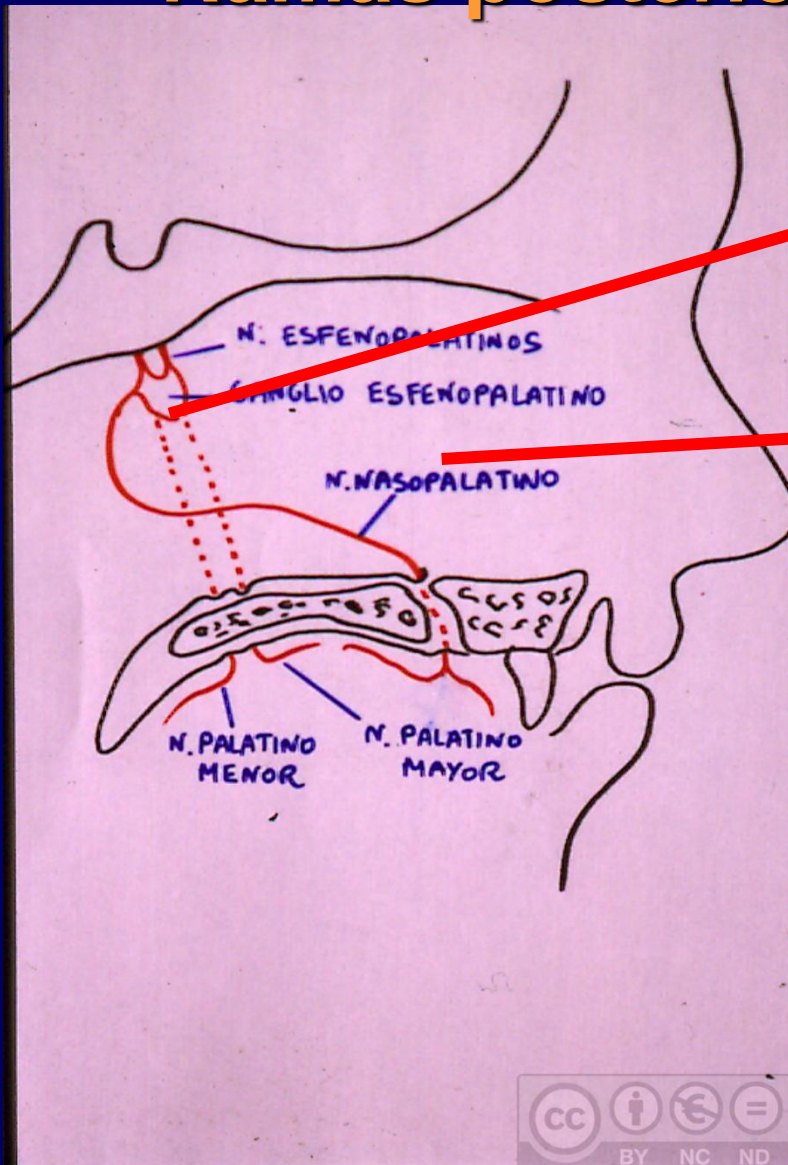 N. ESFENOPALATINOS
GANGLIO ESFENOPALATINO
N. NASOPALATINO
N. PALATINO
MENOR
N. PALATINO
MAYOR
cc
BY NC ND